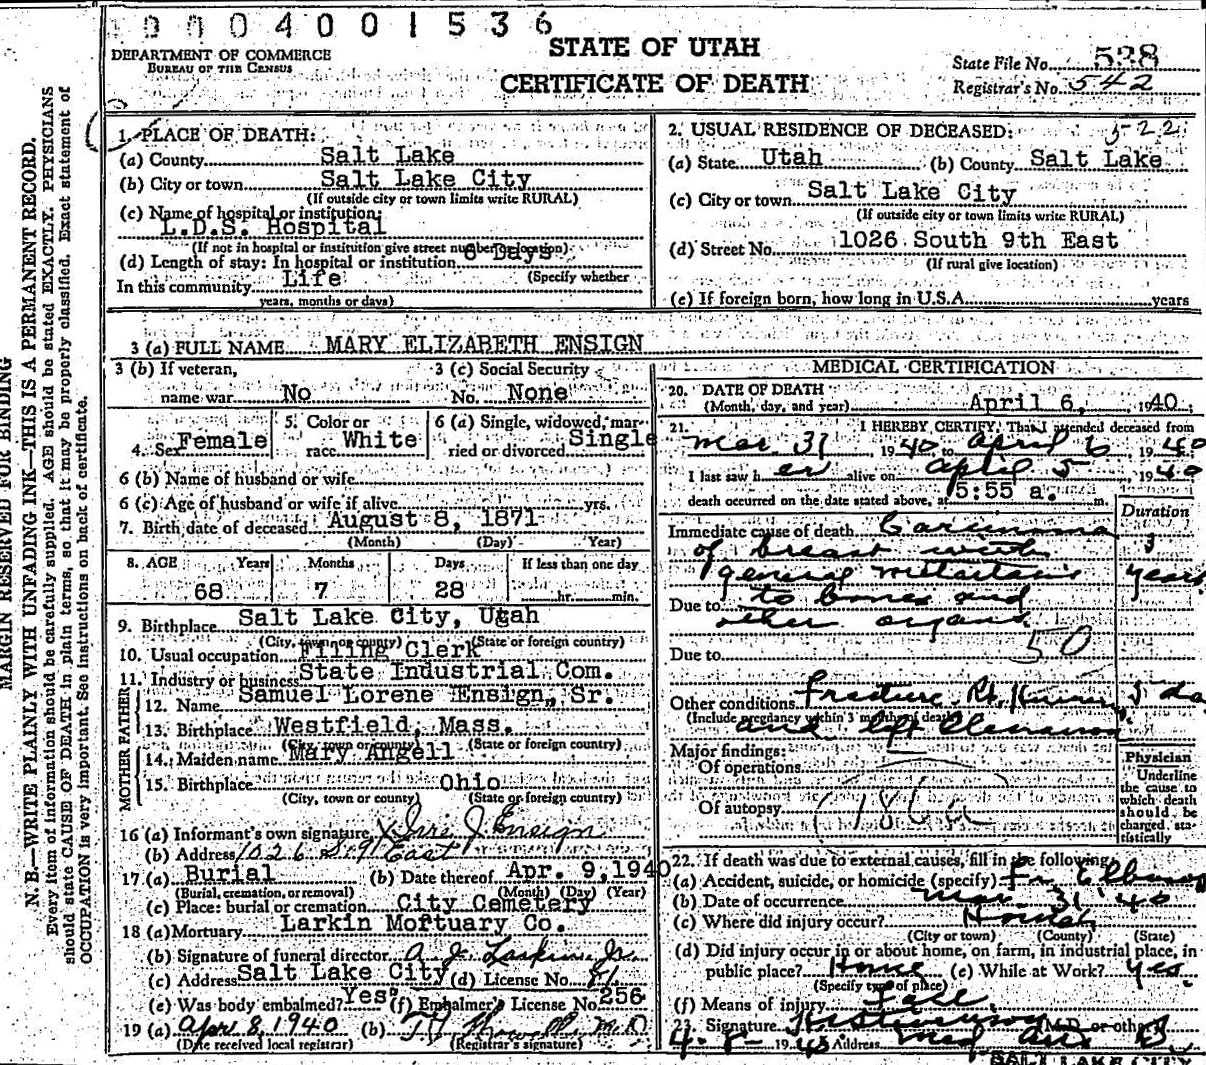 0004001536
DEPARTMENT OF COMMERCE
BUREAU OF THE CENSUS
STATE OF UTAH
CERTIFICATE OF DEATH
State File No. 528
Registrar's No. 542
MARGIN RESERVED FOR BINDING
N. B.—WRITE PLAINLY WITH UNFADING INK—THIS IS A PERMANENT RECORD.
Every item of information should be carefully supplied. AGE should be stated EXACTLY. PHYSICIANS
should state CAUSE OF DEATH in plain terms, so that it may be properly classified. Exact statement of
OCCUPATION is very important. See instructions on back of certificate.
1. PLACE OF DEATH:
(a) County Salt Lake
(b) City or town Salt Lake City
(If outside city or town limits write RURAL)
(c) Name of hospital or institution:
L.D.S. Hospital
(If not in hospital or institution give street number or location)
(d) Length of stay: In hospital or institution Days
(Specify whether
In this community Life
years, months or days)
2. USUAL RESIDENCE OF DECEASED: 5-22
(a) State Utah (b) County Salt Lake
(c) City or town Salt Lake City
(If outside city or town limits write RURAL)
(d) Street No. 1026 South 9th East
(If rural give location)
(e) If foreign born, how long in U.S.A. years
3 (a) FULL NAME MARY ELIZABETH ENSIGN
3 (b) If veteran, 3 (c) Social Security
name war No No. None
4. Sex Female 5. Color or race White 6 (a) Single, widowed, married or divorced Single
6 (b) Name of husband or wife
6 (c) Age of husband or wife if alive yrs.
7. Birth date of deceased August 8, 1871
(Month) (Day) Year)
8. AGE Years Months Days If less than one day
68 7 28 hr. min.
9. Birthplace Salt Lake City, Utah
(City, town or county) (State or foreign country)
10. Usual occupation Filing Clerk
11. Industry or business State Industrial Com.
FATHER
12. Name Samuel Lorene Ensign, Sr.
13. Birthplace Westfield, Mass.
(City, town or county) (State or foreign country)
MOTHER
14. Maiden name Mary Angell
15. Birthplace Ohio
(City, town or county) (State or foreign country)
16 (a) Informant's own signature x J Ensign
(b) Address 1026 S. 9 East
17 (a) Burial (b) Date thereof Apr. 9, 1940
(Burial, cremation or removal) (Month) (Day) (Year)
(c) Place: burial or cremation City Cemetery
18 (a) Mortuary Larkin Mortuary Co.
(b) Signature of funeral director A J Larkin Jr.
(c) Address Salt Lake City (d) License No. 81
(e) Was body embalmed? Yes (f) Embalmer's License No. 256
19 (a) Apr 8, 1940 (b) M.D.
(Date received local registrar) (Registrar's signature)
MEDICAL CERTIFICATION
20. DATE OF DEATH
(Month, day, and year) April 6, 1940
21. I HEREBY CERTIFY, That I attended deceased from
Mar. 31 1940 to April 6, 1940
I last saw her alive on April 5 1940
death occurred on the date stated above, at 5:55 a. m.
Duration
Immediate cause of death Carcinoma
of breast with
general metastasis years
Due to to bones and
other organs.
50
Due to
Other conditions Fracture Rt. 5 da
(Include pregnancy within 3 months of death)
and left
Major findings:
Of operations
Of autopsy 186a
Physician
Underline
the cause to
which death
should be
charged statistically
22. If death was due to external causes, fill in the following:
(a) Accident, suicide, or homicide (specify)
(b) Date of occurrence Mar. 31 '40
(c) Where did injury occur?
(City or town) (County) (State)
(d) Did injury occur in or about home, on farm, in industrial place, in
public place? Home (e) While at Work? Yes
(Specify type of place)
(f) Means of injury Fall.
23. Signature (M.D. or other)
4-8- 1940 Address Med Arts B.
SALT LAKE CITY